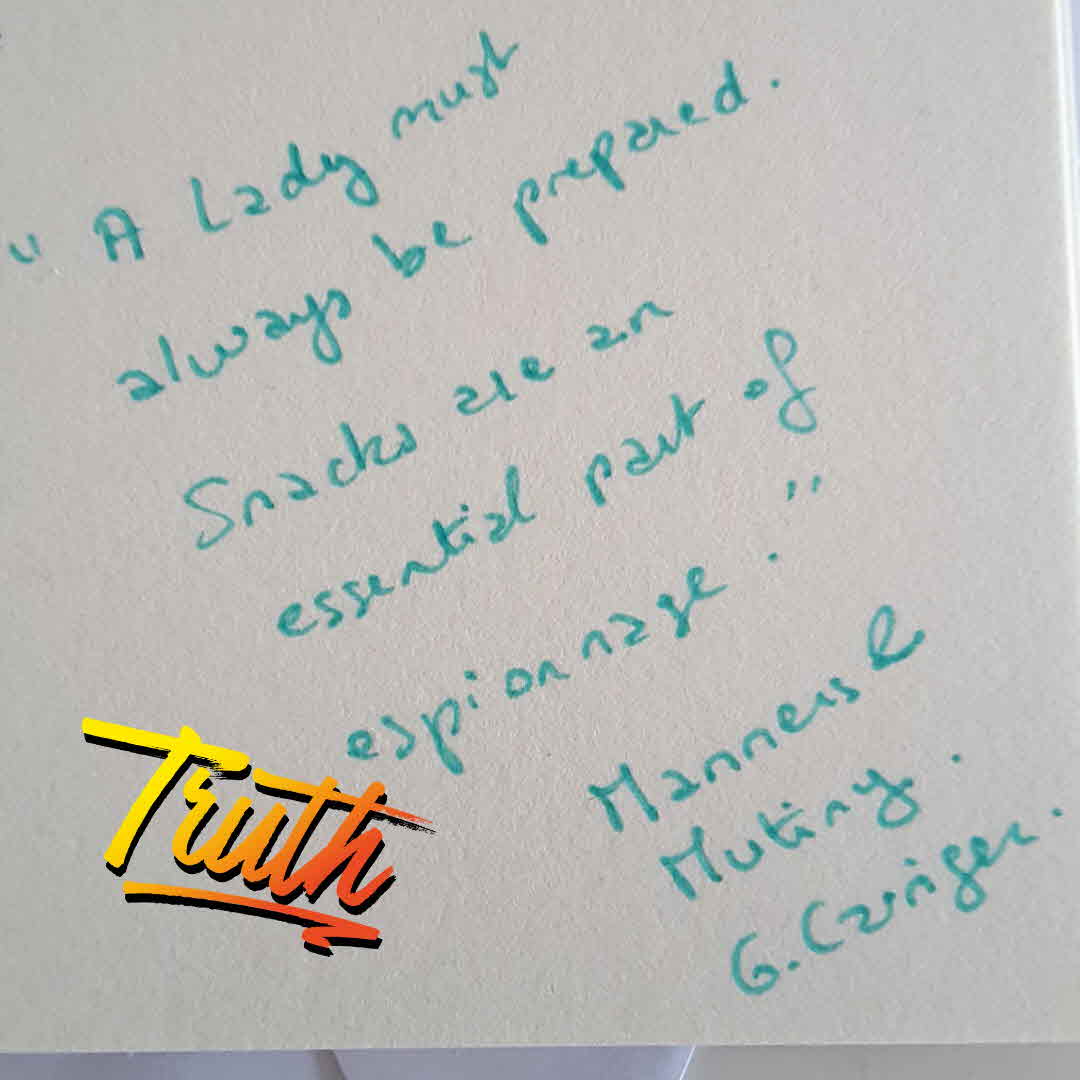 " A Lady must
always be prepared.
Snacks are an
essential part of
espionnage. "
Manners &
Mutiny.
G. Carriger.
Truth